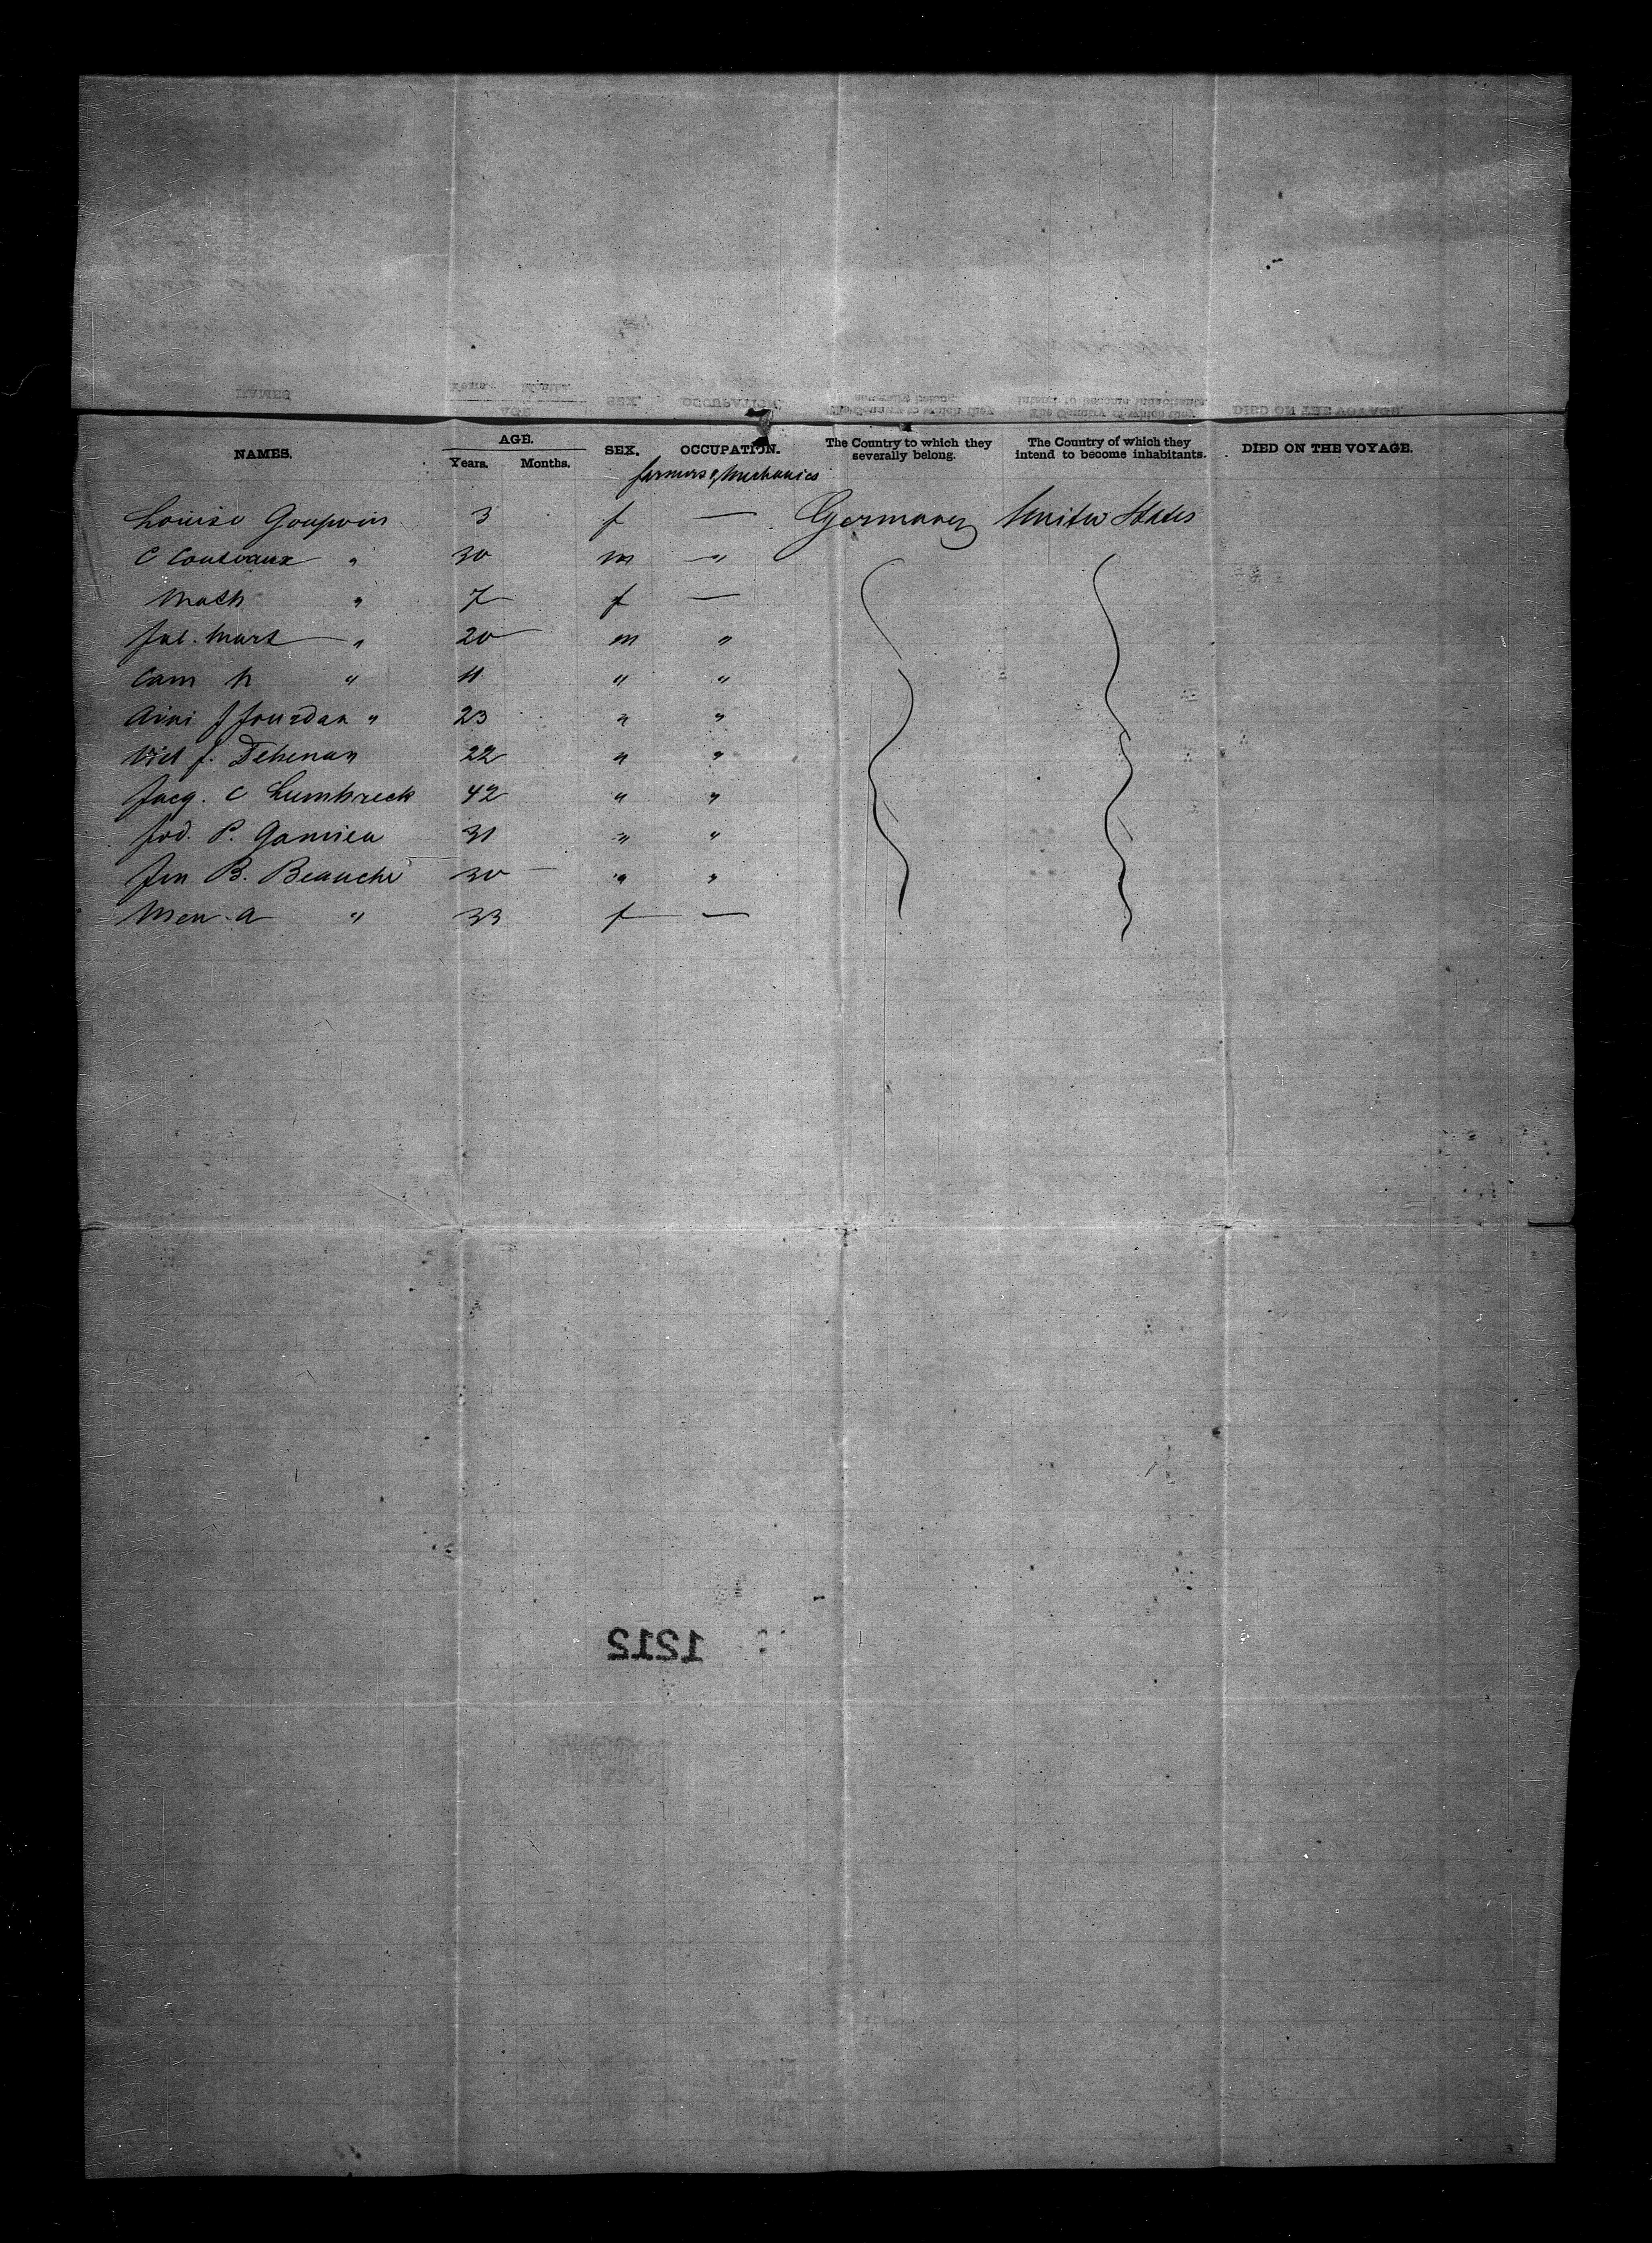 NAMES. AGE. Years. Months. SEX. OCCUPATION. The Country to which they severally belong. The Country of which they intend to become inhabitants. DIED ON THE VOYAGE.
farmers & Mechanics
Louise Goupvin 3 f — Germany United States
C Coutvaux " 30 m "
Math " 7 f —
Jul. Mart " 20 m "
Cam N " 11 " "
Aimi J Jourdan " 23 " "
Vict J. Dehenan 22 " "
Jacq. C Lumbreck 42 " "
Jod. P. Gamien 31 " "
Jen B. Beauche 30 " "
Men. A " 33 f —
1212